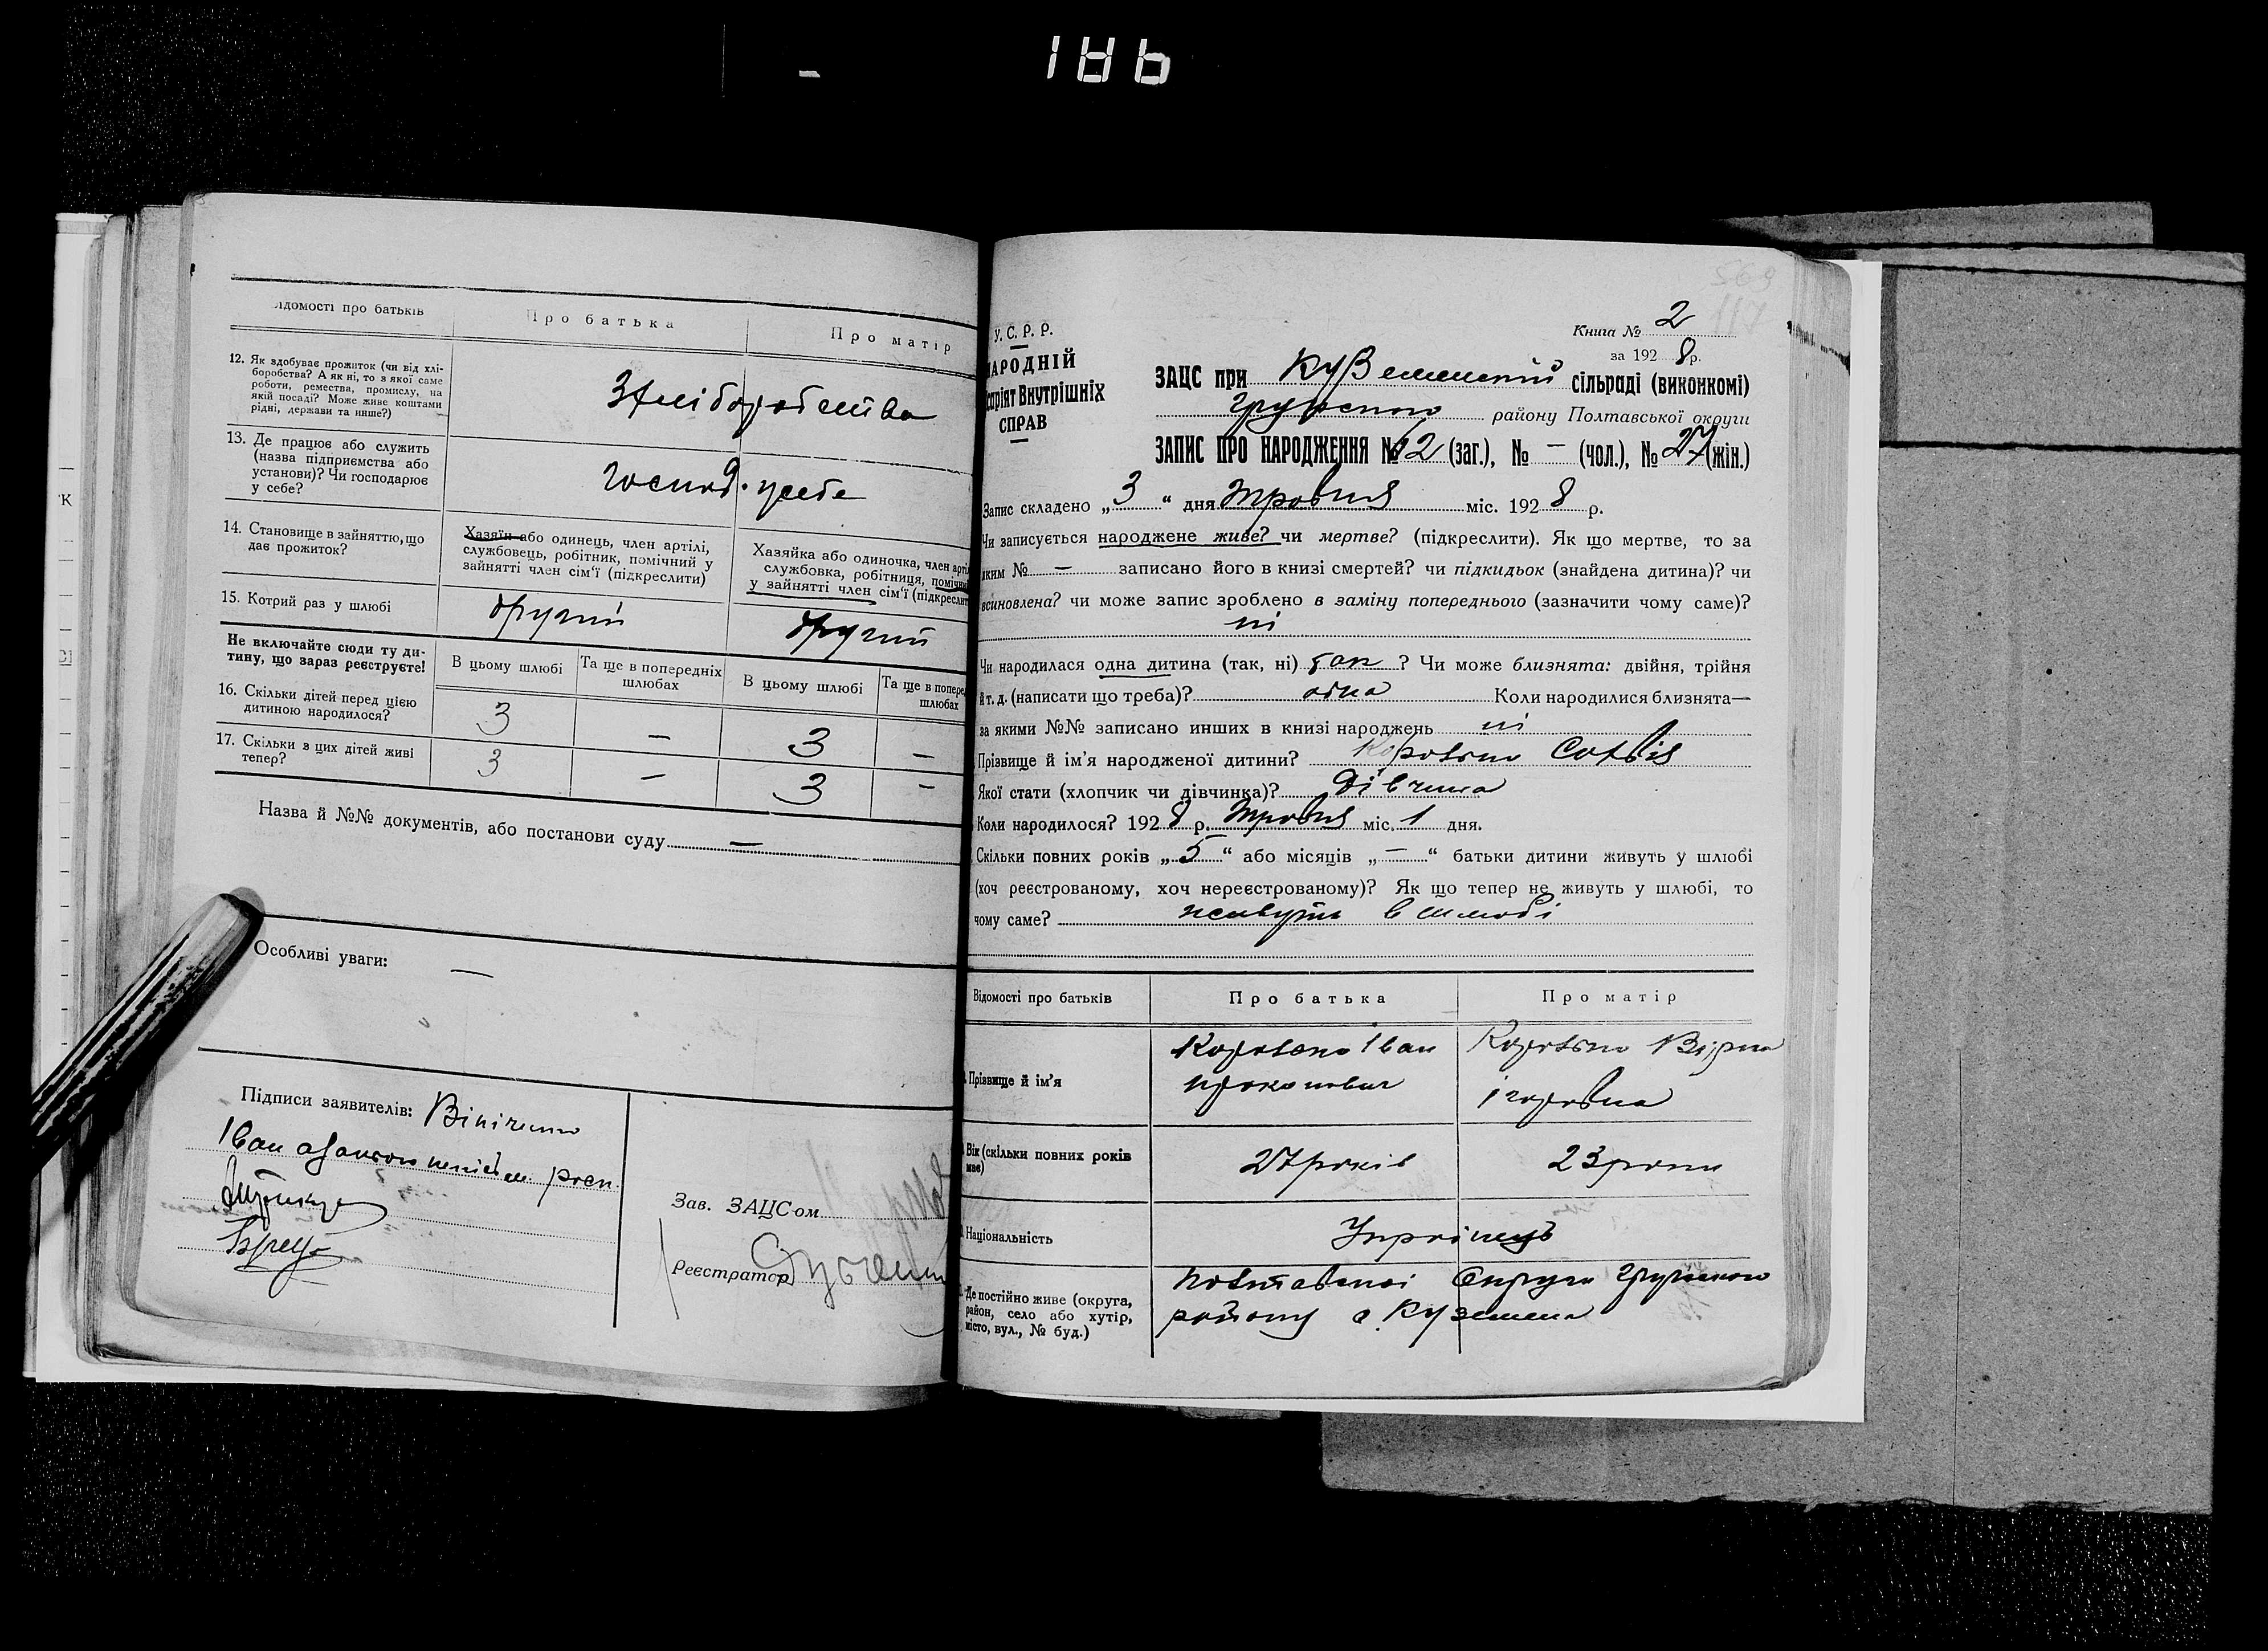 186
ідомості про батьків
Про батька
Про матір
12. Як здобуває прожиток (чи від хлі-
боробства? А як ні, то з якої саме
роботи, ремества, промислу, на
якій посаді? Може живе коштами
рідні, держави та инше?)
З хліборобства
13. Де працює або служить
(назва підприємства або
установи)? Чи господарює
у себе?
господ. у себе
14. Становище в зайняттю, що
дає прожиток?
Хазяїн або одинець, член артілі,
службовець, робітник, помічний у
зайнятті член сім'ї (підкреслити)
Хазяйка або одиночка, член арті
службовка, робітниця, помічни
у зайнятті член сім'ї (підкресли
15. Котрий раз у шлюбі
другий
другий
Не включайте сюди ту ди-
тину, що зараз реєструєте!
В цьому шлюбі
Та ще в попередніх
шлюбах
В цьому шлюбі
Та ще в попере
шлюбах
16. Скільки дітей перед цією
дитиною народилося?
3 — 3 —
17. Скільки з цих дітей живі
тепер?
3 — 3 —
Назва й №№ документів, або постанови суду —
Особливі уваги: —
Підписи заявителів: Вініченко
Іван
Зав. ЗАЦС-ом
Реєстратор
569
117
У.С.Р.Р.
НАРОДНІЙ
Внутрішніх
СПРАВ
Книга № 2
за 1928 р.
ЗАЦС при Куземенській сільраді (виконкомі)
Грунського району Полтавської округи
ЗАПИС ПРО НАРОДЖЕННЯ № 62 (заг.), № — (чол.), № 27 (жін.)
Запис складено „3“ дня Травня міс. 1928 р.
Чи записується народжене живе? чи мертве? (підкреслити). Як що мертве, то за
яким № — записано його в книзі смертей? чи підкидьок (знайдена дитина)? чи
всиновлена? чи може запис зроблено в заміну попереднього (зазначити чому саме)?
ні
Чи народилася одна дитина (так, ні) так ? Чи може близнята: двійня, трійня
й т. д. (написати що треба)? одна Коли народилися близнята—
за якими №№ записано инших в книзі народжень ні
Прізвище й ім'я народженої дитини? Софія
Якої стати (хлопчик чи дівчинка)? Дівчина
Коли народилося? 1928 р. Травня міс. 1 дня.
Скільки повних років „5“ або місяців „—“ батьки дитини живуть у шлюбі
(хоч реєстрованому, хоч нереєстрованому)? Як що тепер не живуть у шлюбі, то
чому саме? живуть в шлюбі
Відомості про батьків
Про батька
Про матір
Прізвище й ім'я
Іван
Прокопович
Вірка
Ігоровна
Вік (скільки повних років
має)
27 років
23 роки
Національність
Українець
Де постійно живе (округа,
район, село або хутір,
місто, вул., № буд.)
Полтавської Округи Грунського
району с. Куземена